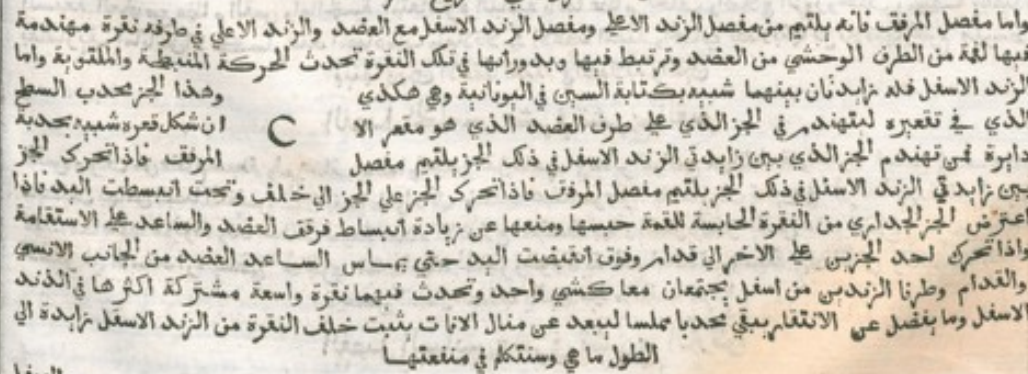 واما مفصل المرفق فانه يلتيم من مفصل الزند الاعلي ومفصل الزند الاسفل مع العضد والزند الاعلي في طرفه نقرة مهندمة
فيها لقمة من الطرف الوحشي من العضد وترتبط فيها وبدورانها في تلك النقرة تحدث الحركة المنبطحة والملقوية واما
الزند الاسفل فله زايدتان بينهما شبيه بكتابة السين في اليونانية وهي هكذي وهذا الجز محدب السطح
الذي في تقعيره ليتهندم في الجز الذي علي طرف العضد الذي هو مقعر الا C ان شكل قعره شبيه بحدبة
دايرة فمن تهندم الجز الذي بين زايدتي الزند الاسفل في ذلك الجز يلتيم مفصل المرفق فاذا تحرك الجز
بين زايدتي الزند الاسفل في ذلك الجز يلتيم مفصل المرفق فاذا تحرك الجز علي الجز الي خلف وتحت انبسطت اليد فاذا
اعترض الجز الجداري من النقرة الحابسة للقمة حبسها ومنعها عن زيادة انبساط فوقف العضد والساعد علي الاستقامة
واذا تحرك احد الجزين علي الاخر الي قدام وفوق انقبضت اليد حتي يماس الساعد العضد من الجانب الانسي
والقدام وطرفا الزندين من اسفل يجتمعان معا كشي واحد وتحدث فيهما نقرة واسعة مشتركة اكثرها في الذند
الاسفل وما يفضل عن الانتقار يبقي محدبا مملسا ليبعد عن منال الافات يثبت خلف النقرة من الزند الاسفل زايدة الي
الطول ما هي وسنتكلم في منفعتها